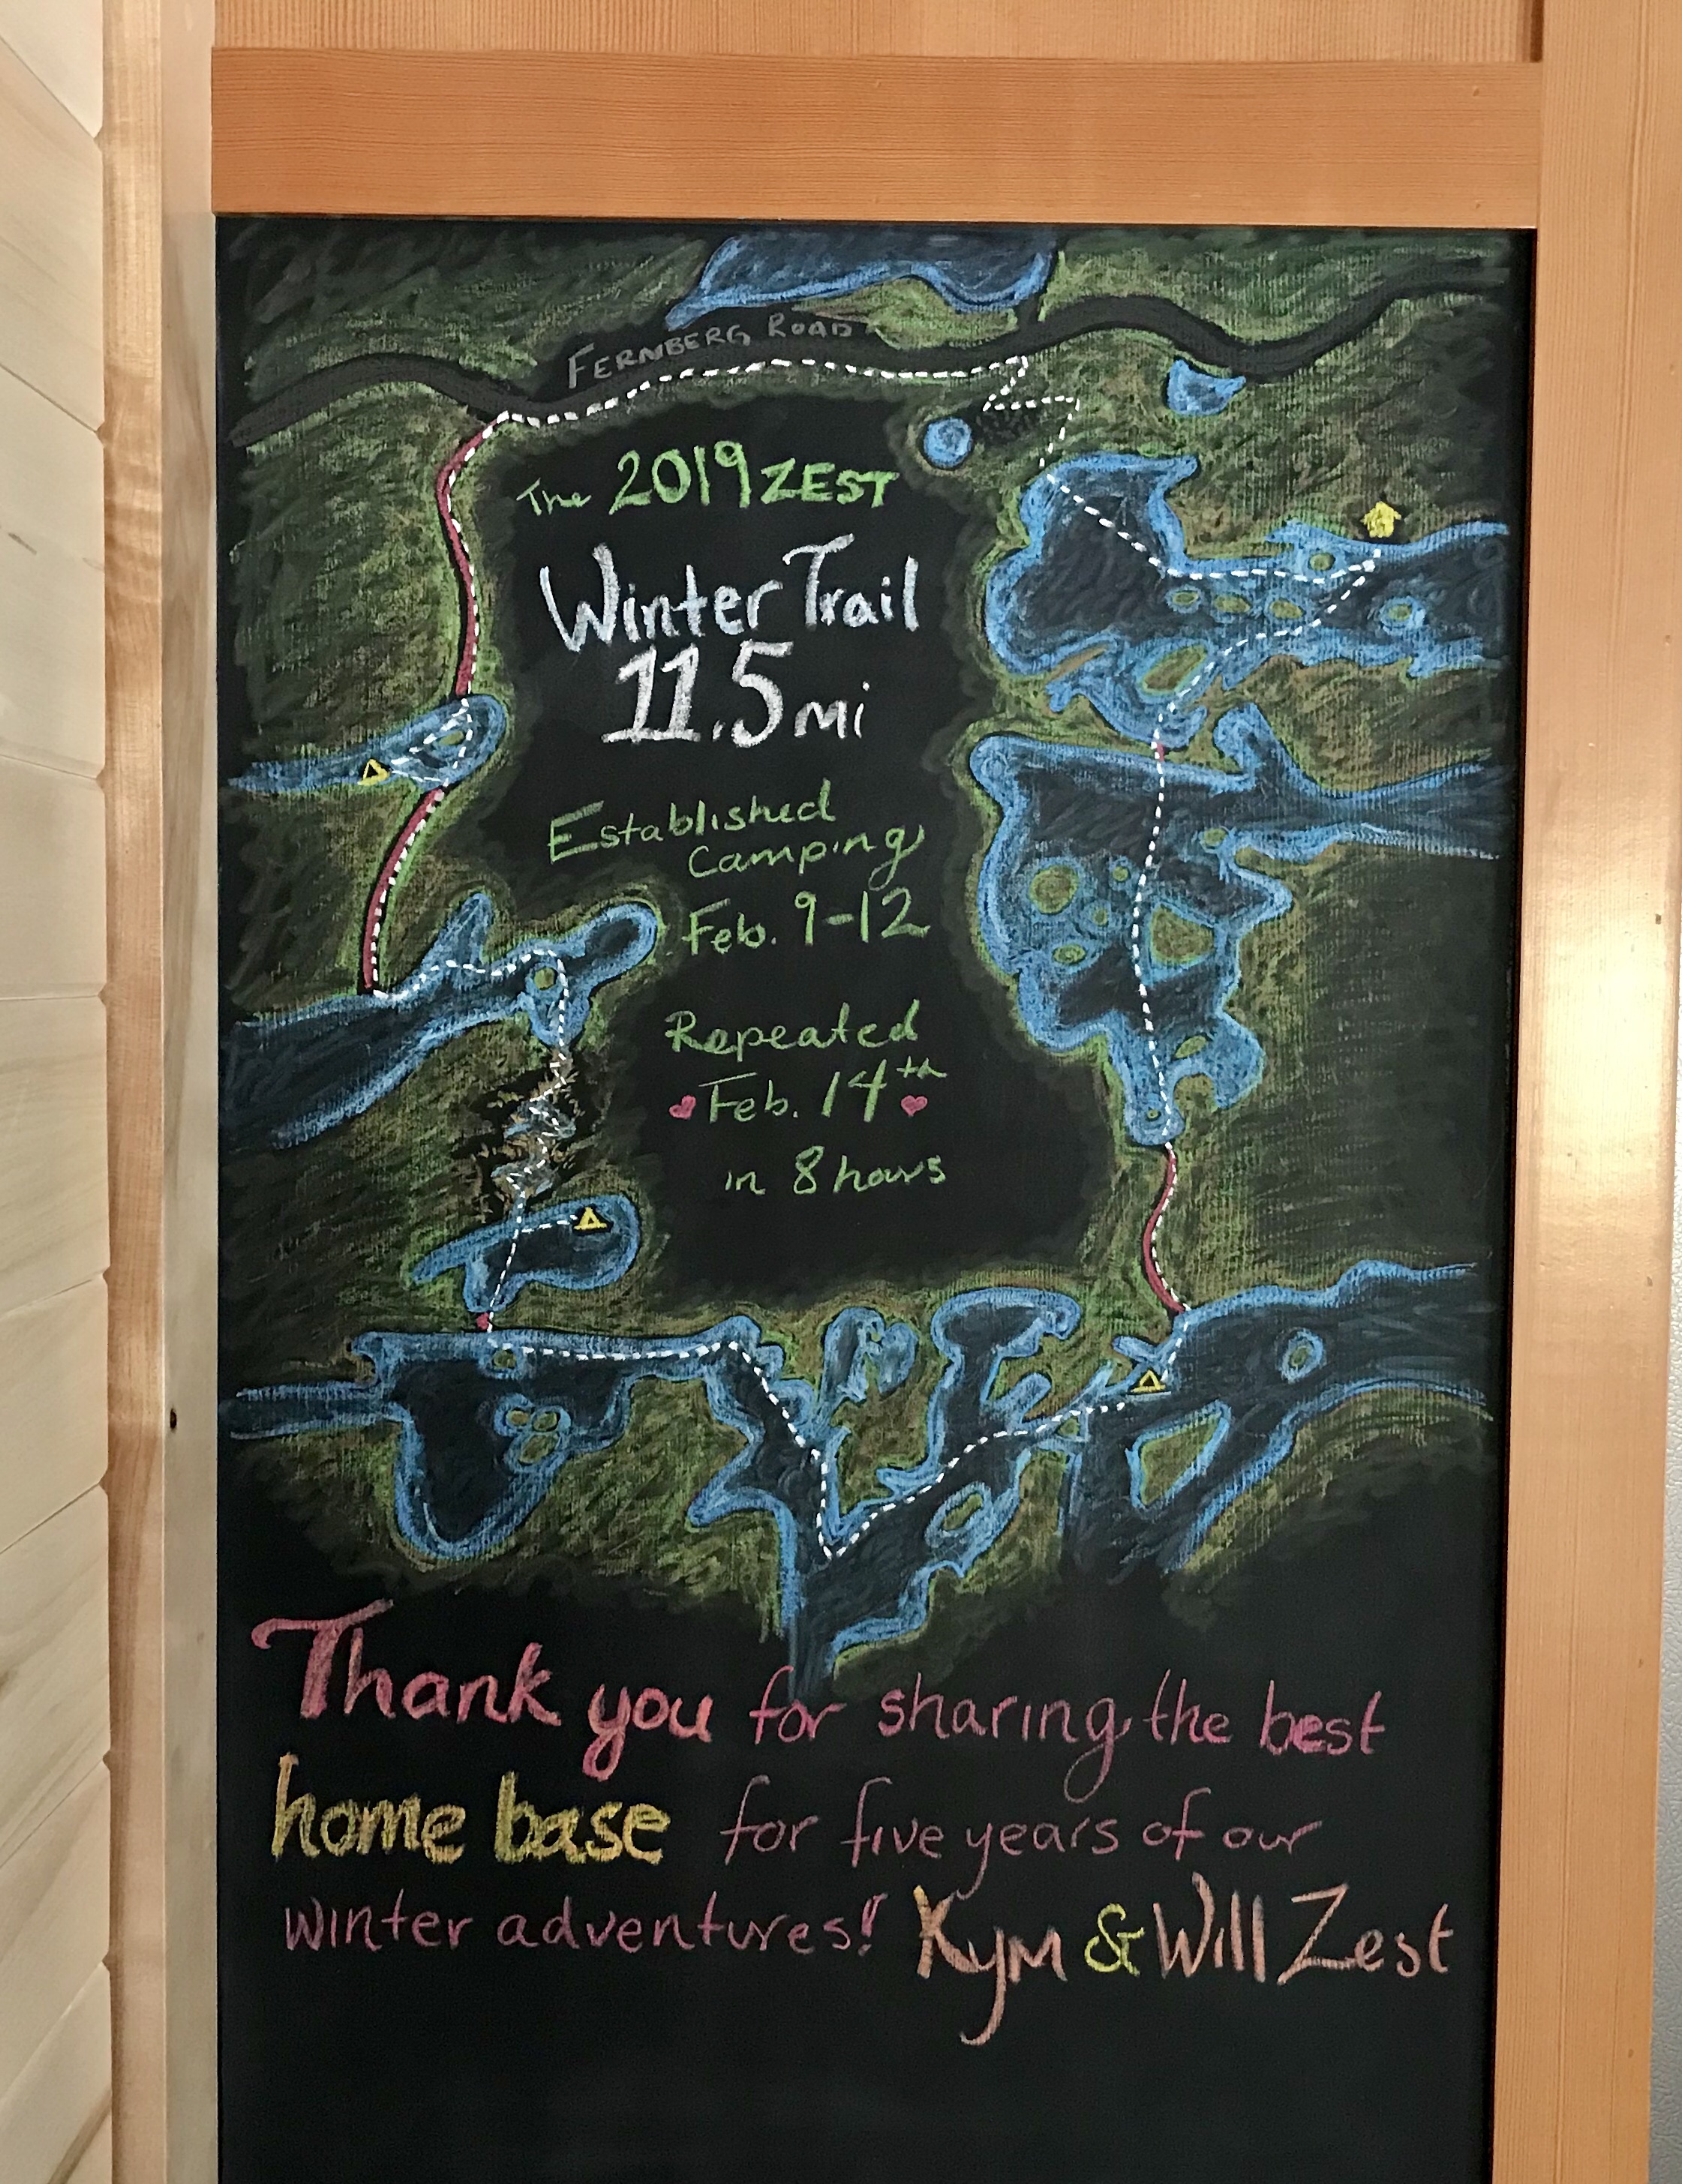 FERNBERG ROAD
The 2019 ZEST
Winter Trail
11.5 mi
Established
Camping
Feb. 9-12
Repeated
Feb. 14th
in 8 hours
Thank you for sharing the best
home base for five years of our
winter adventures! Kym & Will Zest